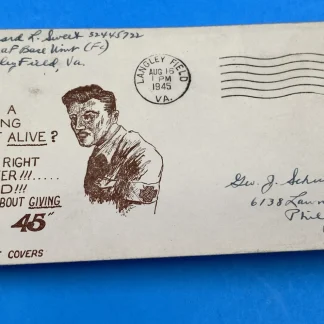 ard L. Sweet 32445722
Base Unit (Fc)
ley Field, Va.
LANGLEY FIELD
AUG 16
1 PM
1945
VA.
A
NG
T ALIVE?
RIGHT
ER!!!.....
D!!!
BOUT GIVING
45"
T COVERS
Geo. J.
6138
Phil